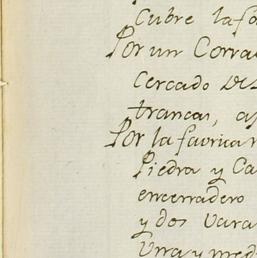 Cubre la fa
Por un Corra
cercado de
trancas, a
Por la favrica
Piedra y Ca
encerradero
y dos vara
Una y med